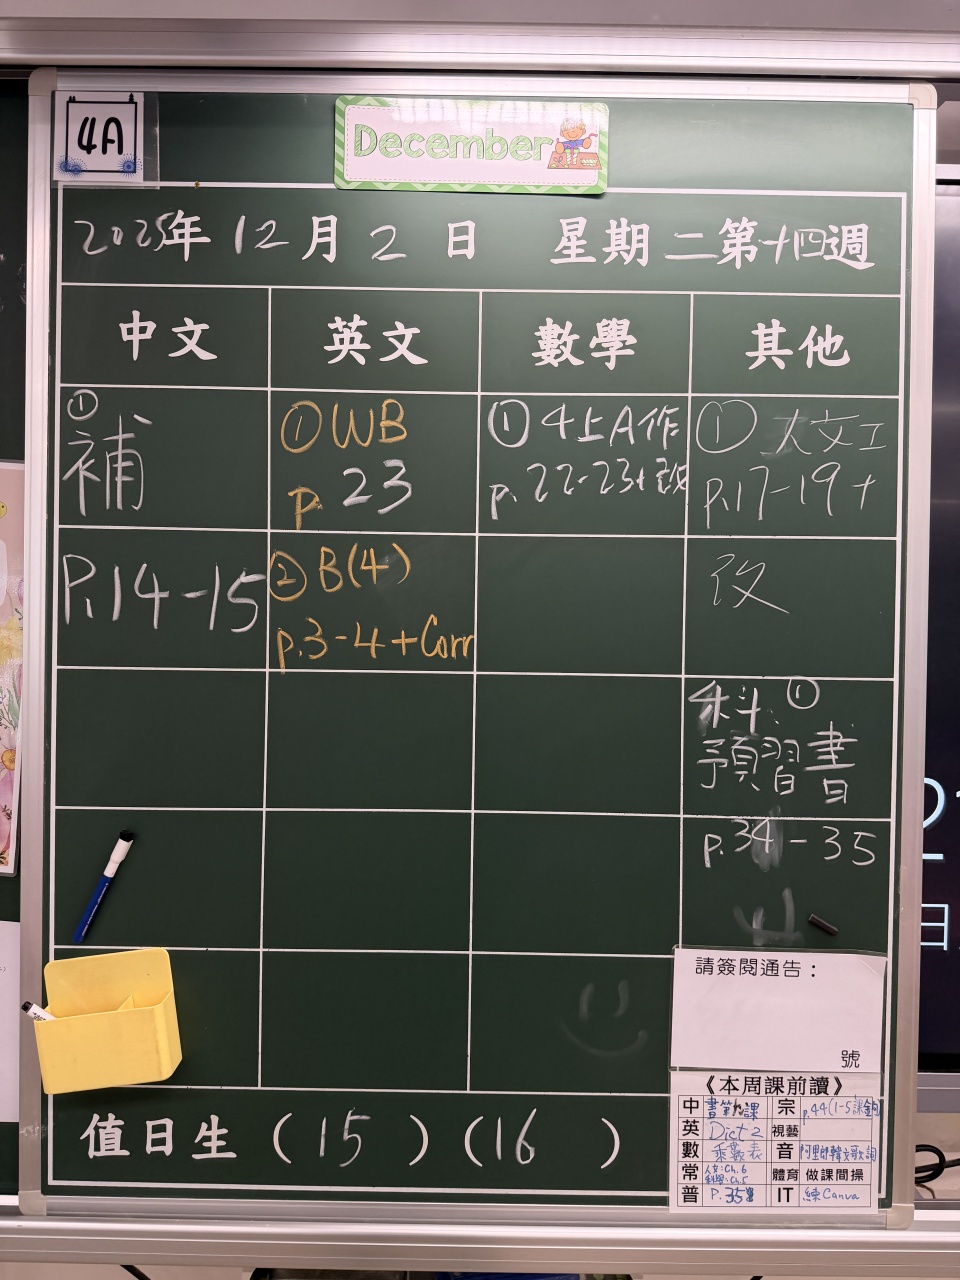 4A
December
2025年 12 月 2 日 星期 二 第十四週
中文 英文 數學 其他
① 補
P.14-15
① WB
p. 23
② B(4)
p.3-4+Corr
① 4上A作
p. 22-23+改
① 人文工
p.17-19+
改
科 ①
預習書
p.34-35
請簽閱通告：
號
值日生 (15) (16)
《本周課前讀》
中 書第九課 宗 p.44(1-5課金句
英 Dict 2 視藝
數 乘數表 音
常 人文:Ch.6 科學:Ch.5 體育 做課間操
普 P.35 IT 練Canva